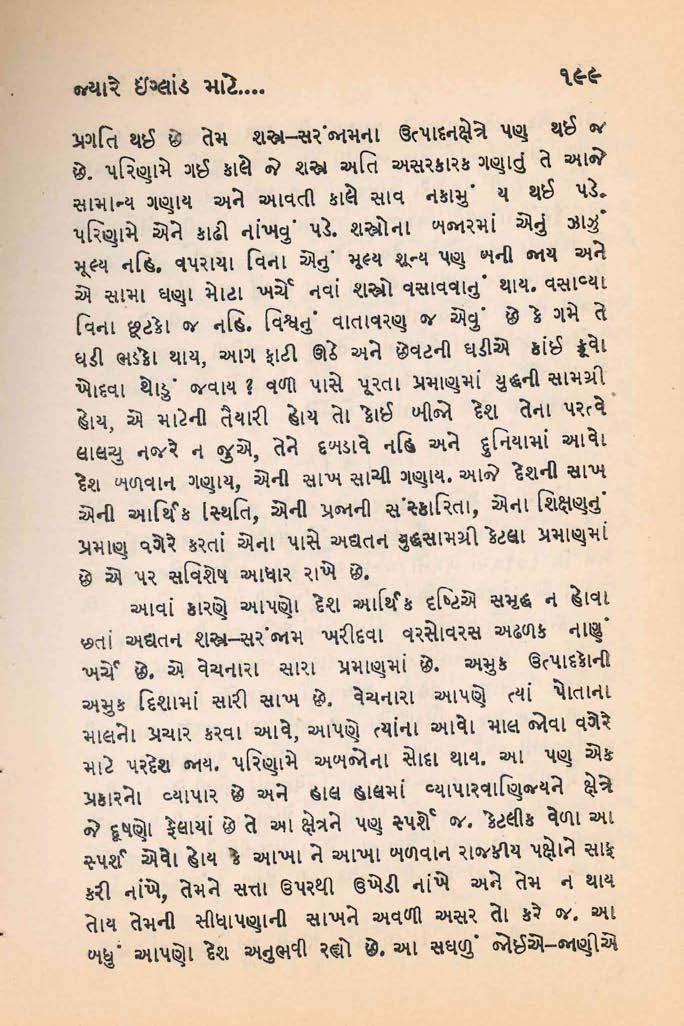 જ્યારે ઇંગ્લાંડ માટે....
૧૯૯
પ્રગતિ થઈ છે તેમ શસ્ત્ર–સરંજામના ઉત્પાદનક્ષેત્રે પણ થઈ જ
છે. પરિણામે ગઈ કાલે જે શસ્ત્ર અતિ અસરકારક ગણાતું તે આજે
સામાન્ય ગણાય અને આવતી કાલે સાવ નકામું ય થઈ પડે.
પરિણામે એને કાઢી નાંખવું પડે. શસ્ત્રોના બજારમાં એનું ઝાઝું
મૂલ્ય નહિ. વપરાયા વિના એનું મૂલ્ય શૂન્ય પણ બની જાય અને
એ સામા ઘણા મોટા ખર્ચે નવાં શસ્ત્રો વસાવવાનું થાય. વસાવ્યા
વિના છૂટકો જ નહિ. વિશ્વનું વાતાવરણ જ એવું છે કે ગમે તે
ઘડી ભડકો થાય, આગ ફાટી ઊઠે અને છેવટની ઘડીએ કાંઈ કૂવો
ખોદવા થોડું જવાય ? વળી પાસે પૂરતા પ્રમાણમાં યુદ્ધની સામગ્રી
હોય, એ માટેની તૈયારી હોય તો કોઈ બીજો દેશ તેના પરત્વે
લાલચુ નજરે ન જુએ, તેને દબડાવે નહિ અને દુનિયામાં આવો
દેશ બળવાન ગણાય, એની સાખ સાચી ગણાય. આજે દેશની સાખ
એની આર્થિક સ્થિતિ, એની પ્રજાની સંસ્કારિતા, એના શિક્ષણનું
પ્રમાણ વગેરે કરતાં એના પાસે અદ્યતન યુદ્ધસામગ્રી કેટલા પ્રમાણમાં
છે એ પર સવિશેષ આધાર રાખે છે.
આવાં કારણે આપણો દેશ આર્થિક દૃષ્ટિએ સમૃદ્ધ ન હોવા
છતાં અદ્યતન શસ્ત્ર–સરંજામ ખરીદવા વરસોવરસ અઢળક નાણું
ખર્ચે છે. એ વેચનારા સારા પ્રમાણમાં છે. અમુક ઉત્પાદકોની
અમુક દિશામાં સારી સાખ છે. વેચનારા આપણે ત્યાં પોતાના
માલનો પ્રચાર કરવા આવે, આપણે ત્યાંના આવો માલ જોવા વગેરે
માટે પરદેશ જાય. પરિણામે અબજોના સોદા થાય. આ પણ એક
પ્રકારનો વ્યાપાર છે અને હાલ હાલમાં વ્યાપારવાણિજ્યને ક્ષેત્રે
જે દૂષણો ફેલાયાં છે તે આ ક્ષેત્રને પણ સ્પર્શે જ. કેટલીક વેળા આ
સ્પર્શ એવો હોય કે આખા ને આખા બળવાન રાજકીય પક્ષોને સાફ
કરી નાંખે, તેમને સત્તા ઉપરથી ઉખેડી નાંખે અને તેમ ન થાય
તોય તેમની સીધાપણાની સાખને અવળી અસર તો કરે જ. આ
બધું આપણો દેશ અનુભવી રહ્યો છે. આ સઘળું જોઈએ–જાણીએ